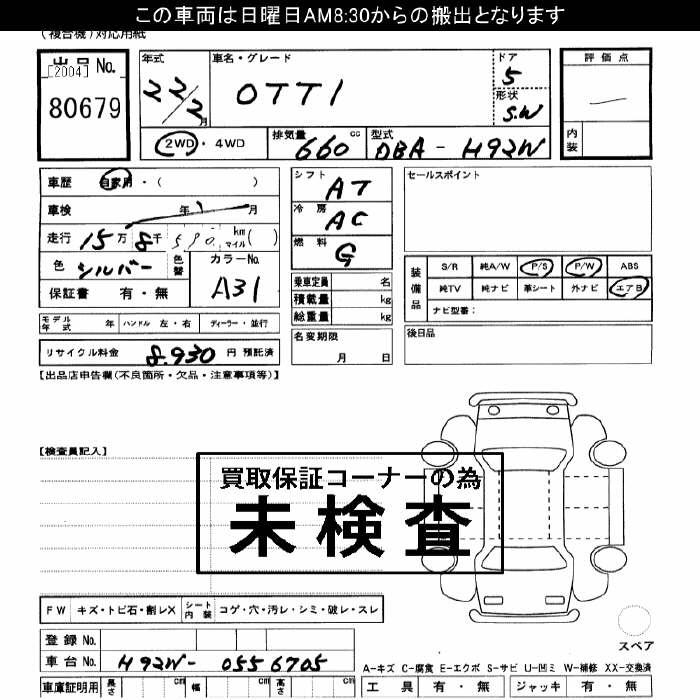 この車両は日曜日AM8:30からの搬出となります
(複合機)対応用紙
出品 No.
[2004]
80679
年式
22/2月
車名・グレード
OTTI
ドア
5
形状
S.W
評価点
内装
2WD・4WD
排気量 660 cc
型式 DBA - H92W
車歴 自家用・( )
車検 年 月
走行 15万 8千 590 km マイル ( )
色 シルバー 色替
カラーNo. A31
保証書 有・無
シフト AT
冷房 AC
燃料 G
乗車定員 名
積載量 kg
総重量 kg
セールスポイント
装備品
S/R 純A/W P/S P/W ABS
純TV 純ナビ 革シート 外ナビ エアB
ナビ型番:
モデル年式 年 ハンドル 左・右 ディーラー・並行
名変期限
月 日
後日品
リサイクル料金 8,930 円 預託済
【出品店申告欄(不良箇所・欠品・注意事項等)】
【検査員記入】
買取保証コーナーの為
未検査
FW キズ・トビ石・割レX シート内装 コゲ・穴・汚レ・シミ・破レ・スレ
登録 No.
車台 No. H92W- 0556705
スペア
A-キズ C-腐食 E-エクボ S-サビ U-凹ミ W-補修 XX-交換済
車庫証明用 長さ cm 幅 cm 高さ cm
工具 有・無 ジャッキ 有・無